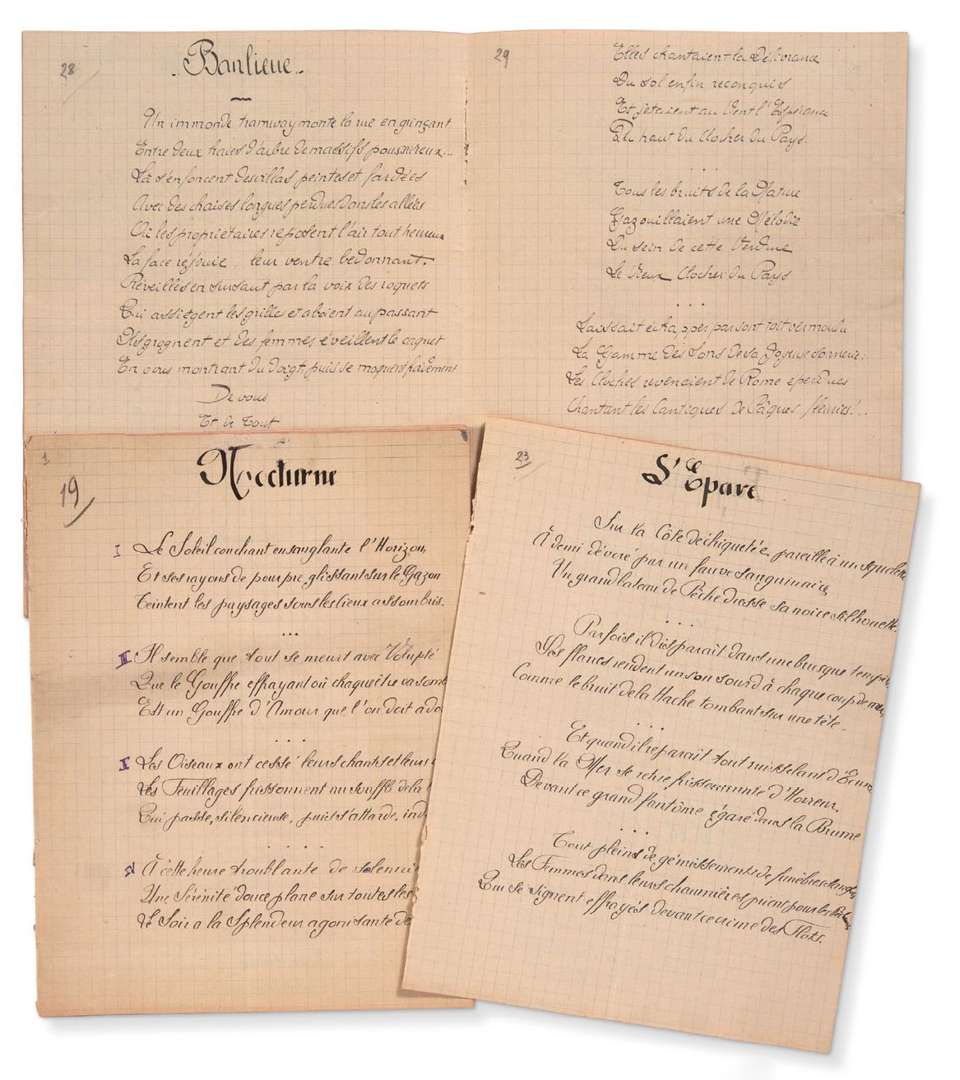 28
Banlieue
Un immonde tramway monte la rue en grinçant
Entre deux haies d'aubre de massifs poussiereux...
Là s'enfoncent des villas peintes et fardées
Avec des chaises longues perdues dans les allées
Où les propriétaires reposent l'air tout heureux
La face réjouie.. leur ventre bedonnant.
Réveillés en sursaut par la voix des roquets
Qui assiègent les grille et aboient au passant
Ils grognent et des femmes éveillent le caquet
En vous montrant du doigt, puis se moquent
De vous
Et de Tout
29
Elles chantaient la Délivrance
Du sol enfin reconquis
Et jetaient au Vent l'Espérance
Du haut du Clocher du Pays.
...
Tous les bruits de la Nature
Gazouillaient une Mélodie
Du sein de cette Verdure
Le Vieux Clocher du Pays
...
Laissait échapper par son toit vermoulu
La Gamme des Sons de sa Joyeuse sonnerie:
Les Cloches revenaient de Rome eperdues
Chantant les Cantiques de Pâques fleuries!..
1
19
Nocturne
I Le Soleil couchant ensanglante l'Horizon
Et ses rayons de pourpre, glissant sur le Gazon
Teintent les paysages sous les Cieux assombris.
...
II Il semble que tout se meurt avec Volupté
Que le Gouffre effrayant où chaque être va
Est un Gouffre d'Amour que l'on doit
...
I Les Oiseaux ont cessé leurs chants et leurs
Les Feuillages frissonnent au souffle de la
Qui passe, silencieuse, puis s'attarde,
....
A cette heure troublante de
Une Sérénité douce plane sur toutes les
Le Soir a la Splendeur agonisante de
23
L'Epave
Sur la Côte déchiquetée pareille à un squelette
A demi dévoré par un fauve sanguinaire
Un grand bateau de Pêche dresse sa noire silhouette.
Parfois il disparaît dans une brusque
Ses flancs rendent un son sourd à chaque coup de
Comme le bruit de la Hache tombant sur une tête.
...
Et quand il reparaît tout ruisselant d'Ecume
Quand la Mer se retire frissonnante d'Horreur.
Devant ce grand fantôme égaré dans la Brume
...
Tout pleins de gémissements de funèbres
Les Femmes dans leurs chaumières prient pour les
Qui se signent effrayés devant ce crime des Flots.